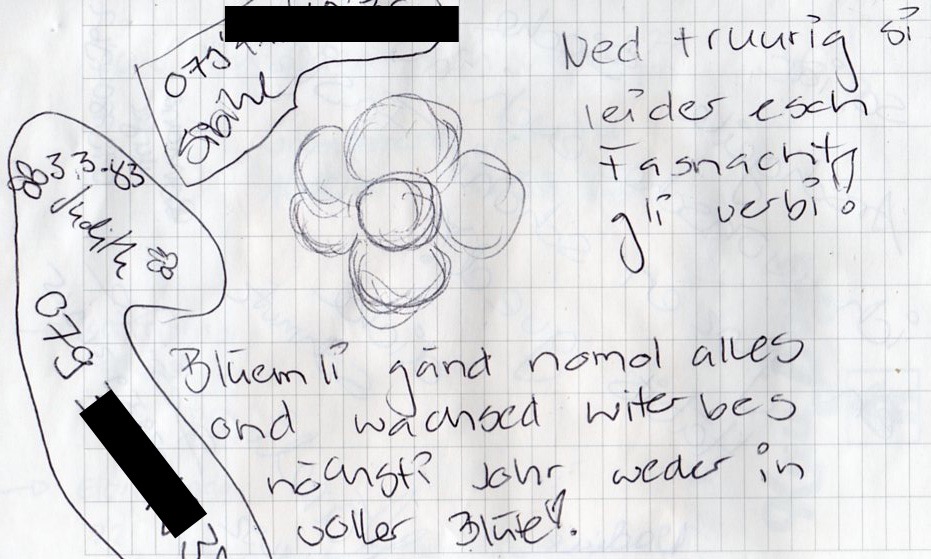 079
Ned truurig si
leider esch
Fasnacht
gli verbi!
3.3.83
Judith
079
Blüemli gänd nomol alles
ond wachsed witer bes
nöchst Johr weder in
voller Blüte!.